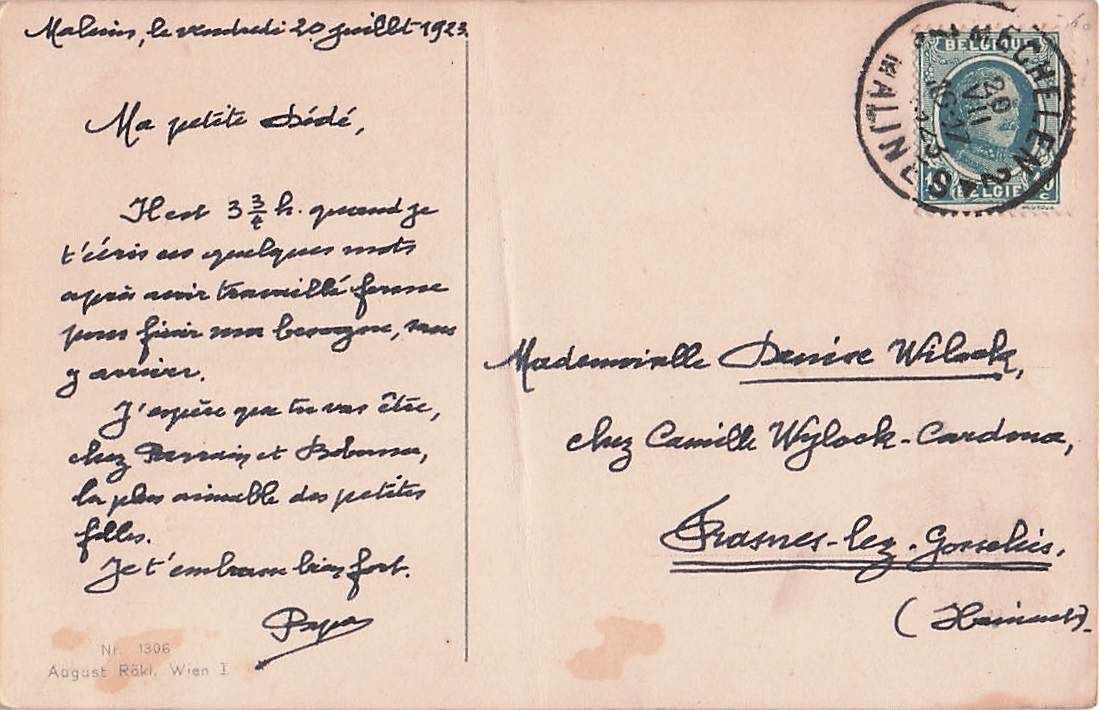 Malines, le vendredi 20 juillet 1923
Ma petite Dédé,
Il est 3 3/4 h. quand je
t'écris ces quelques mots
après avoir travaillé ferme
pour finir ma besogne,
y arriver.
J'espère que tu vas être,
chez Parrain et Bobonne,
la plus aimable des petites
filles.
Je t'embrasse bien fort.
Papa
Nr. 1306
August Rökl, Wien I
BELGIQUE
BELGIË
MECHELEN 2
MALINES 2
20
VII
16-17
1923
Mademoiselle Denise Wilock,
chez Camille Wylock-Cardona,
Frasnes-lez-Gosselies.
(Hainaut).